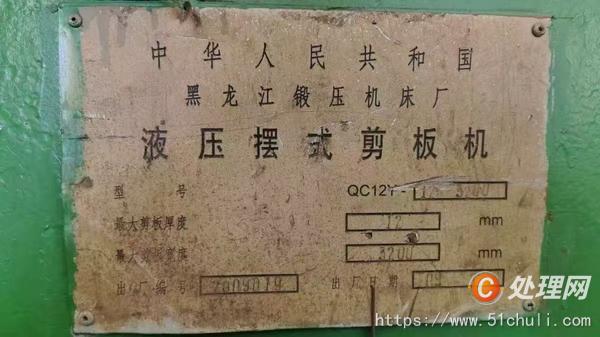 中华人民共和国
黑龙江锻压机床厂
液压摆式剪板机
型号 QC12Y-12 3200
最大剪板厚度 12 mm
最大剪板宽度 3200 mm
出厂编号 出厂日期 09
C处理网
https://www.51chuli.com